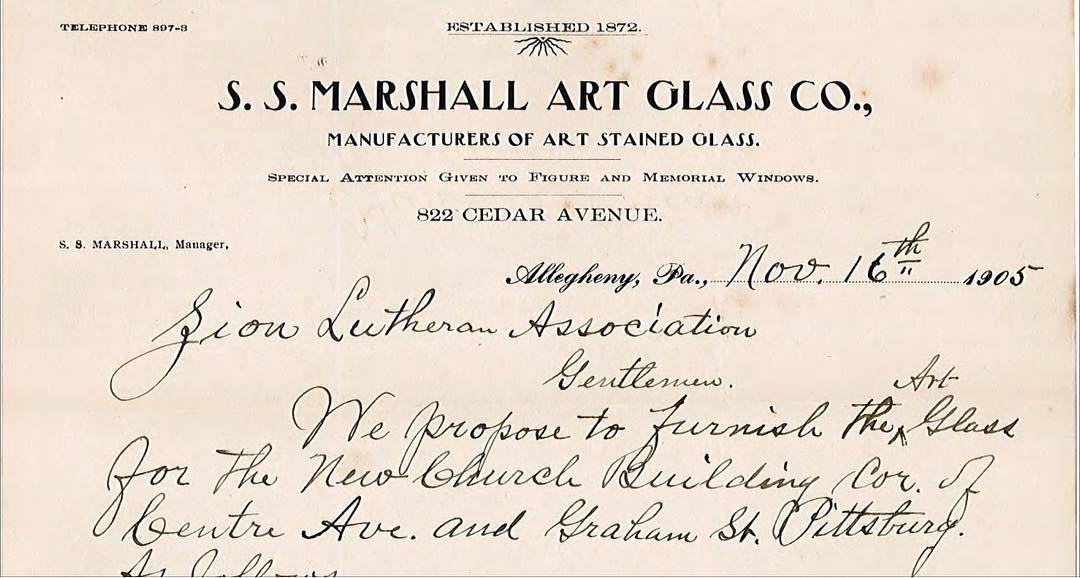 TELEPHONE 897-3
ESTABLISHED 1872.
S. S. MARSHALL ART GLASS CO.,
MANUFACTURERS OF ART STAINED GLASS.
SPECIAL ATTENTION GIVEN TO FIGURE AND MEMORIAL WINDOWS.
822 CEDAR AVENUE.
S. S. MARSHALL, Manager,
Allegheny, Pa., Nov. 16th 1905
Zion Lutheran Association
Gentlemen.
We propose to furnish the Art Glass
for the New Church Building Cor. of
Centre Ave. and Graham St. Pittsburg.
As follows